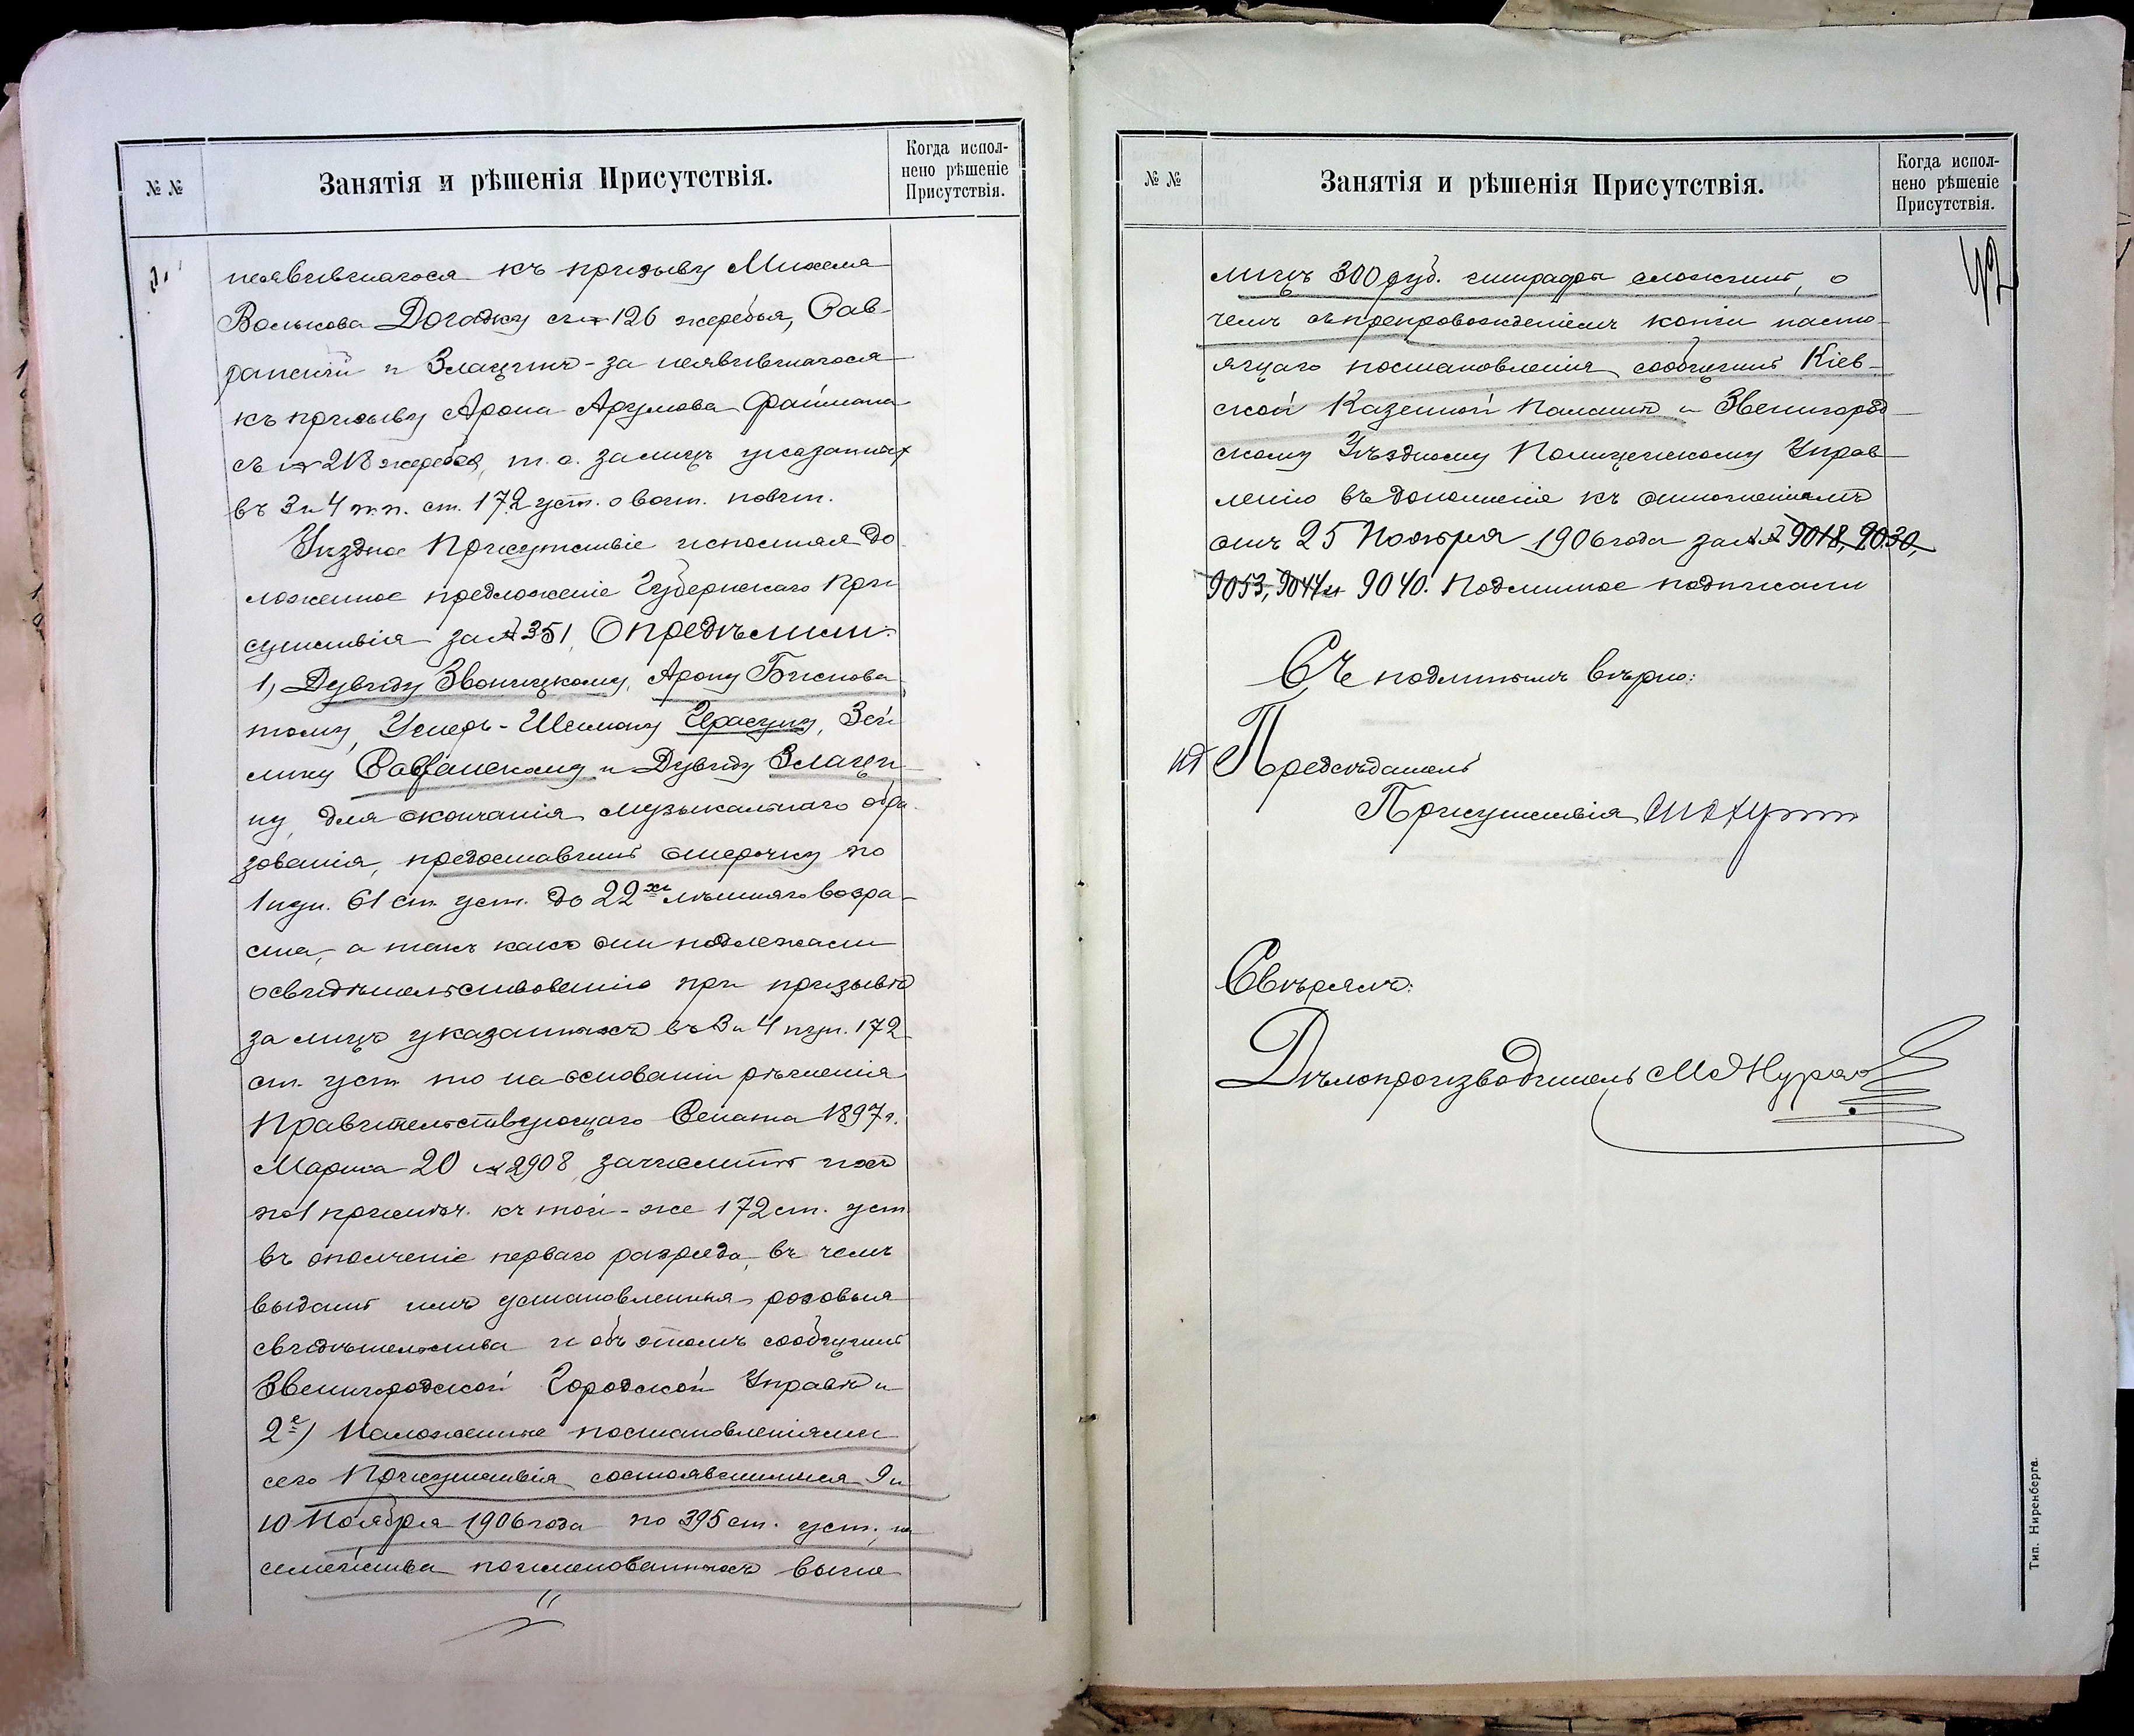 № №
Занятія и рѣшенія Присутствія.
Когда испол-
нено рѣшеніе
Присутствія.
неявившагося къ призыву Михеля
Волькова Догадку съ № 126 жеребья, Сав-
ранскій и Златинъ - за неявившагося
къ призыву Арона Арумова Файмана
съ № 218 жеребья, т. е. за лицъ указанныхъ
въ 3 и 4 п.п. ст. 172 уст. о воин. повин.
Уѣздное Присутствіе исполняя до
ложенное предложеніе Губернскаго При
сутствія за № 351, Опредѣлили:
1, Дувиду Звоницкому, Арону Биснова
тому, Усиеръ-Шеману Герасуну, Зей
лику Савранскому и Дувиду Злати
ну, для окончанія музыкальнаго обра-
зованія, предоставить отсрочку по
1 пун. 61 ст. уст. до 22хъ лѣтняго возра-
ста, а такъ какъ они подлежали
освидѣтельствованію при призывѣ
за лицъ указанныхъ въ 3 и 4 пун. 172
ст. уст. то на основаніи рѣшенія
Правительствующаго Сената 1897 г.
Марта 20 № 2908, зачислить ихъ
по 1 примѣч. къ той-же 172 ст. уст.
въ ополченіе перваго разряда, въ чемъ
выдать имъ установленныя розовыя
свидѣтельства и объ этомъ сообщить
Звенигородской Городской Управѣ и
2е) Наложенные постановленіями
сего Присутствія состоявшимися 9 и
10 Ноября 1906 года по 395 ст. уст. на
семейства поименованныхъ выше
№ №
Занятія и рѣшенія Присутствія.
Когда испол-
нено рѣшеніе
Присутствія.
42
лицъ 300 руб. штрафы сложить, о
чемъ съ препровожденіемъ копіи насто-
ящаго постановленія сообщить Кіев-
ской Казенной Палатѣ и Звенигород
скому Уѣздному Полицейскому Управ
ленію въ дополненіе къ отношеніямъ
отъ 25 Ноября 1906 года за №№ 9018, 9030,
9053, 9044 и 9040. Подлинное подписали
Съ подлиннымъ вѣрно:
Предсѣдатель
Присутствія
Свѣрялъ:
Дѣлопроизводитель
Тип. Ниренберга.